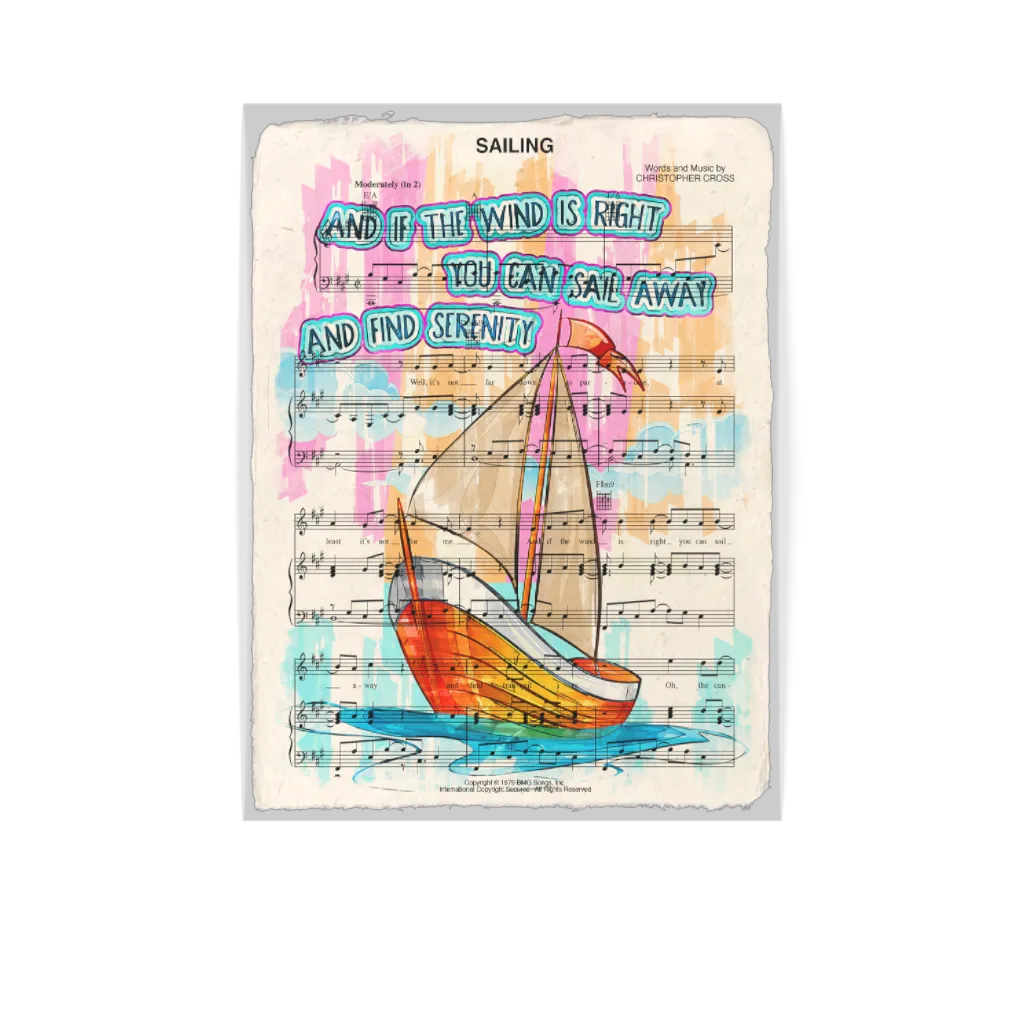 SAILING
Words and Music by
CHRISTOPHER CROSS
Moderately (in 2)
E/A
A
AND IF THE WIND IS RIGHT
YOU CAN SAIL AWAY
AND FIND SERENITY
Well, it's not far down to par - at
F♯m9
least it's not for me. And if the wind is right you can sail
a - way and find Oh, the can -
Copyright © 1979 BMG Songs, Inc.
International Copyright Secured All Rights Reserved